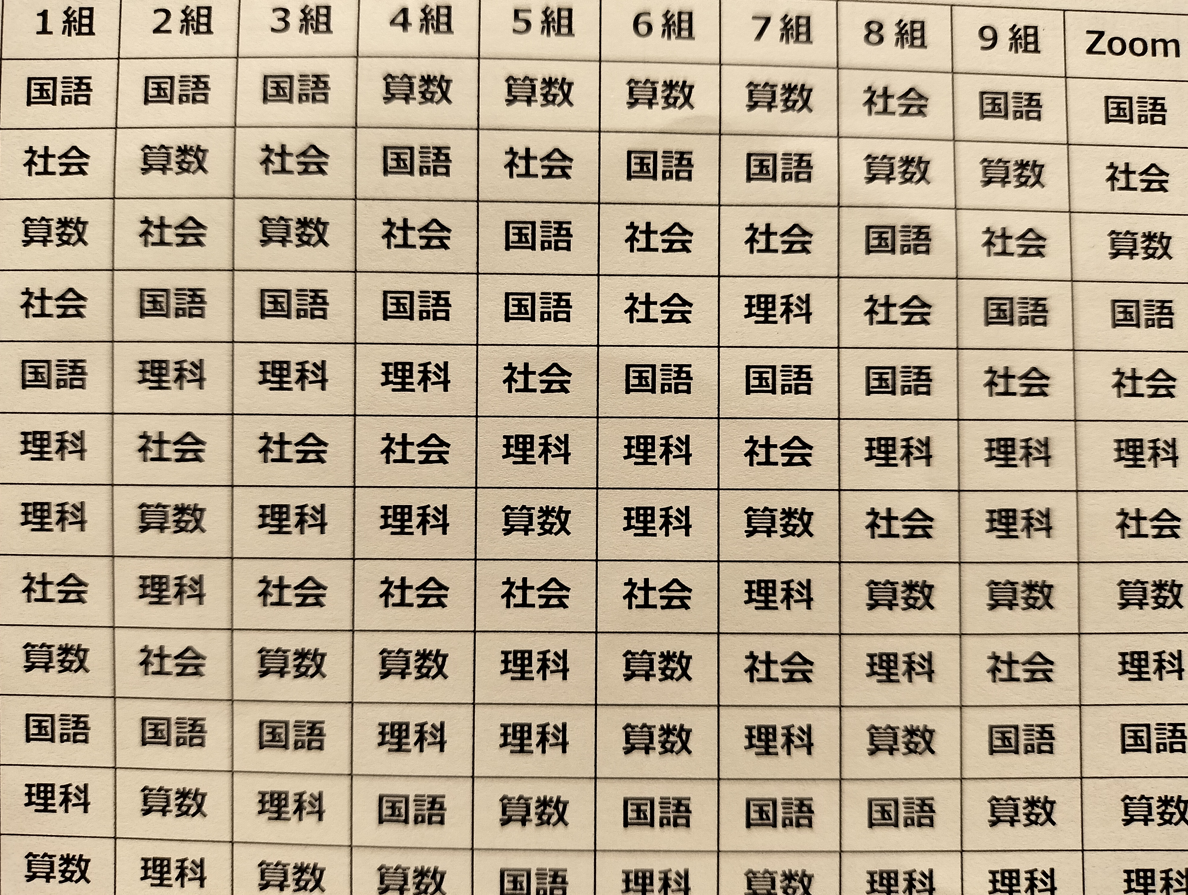 1組 2組 3組 4組 5組 6組 7組 8組 9組 Zoom
国語 国語 国語 算数 算数 算数 算数 社会 国語 国語
社会 算数 社会 国語 社会 国語 国語 算数 算数 社会
算数 社会 算数 社会 国語 社会 社会 国語 社会 算数
社会 国語 国語 国語 国語 社会 理科 社会 国語 国語
国語 理科 理科 理科 社会 国語 国語 国語 社会 社会
理科 社会 社会 社会 理科 理科 社会 理科 理科 理科
理科 算数 理科 理科 算数 理科 算数 社会 理科 社会
社会 理科 社会 社会 社会 社会 理科 算数 算数 算数
算数 社会 算数 算数 理科 算数 社会 理科 社会 理科
国語 国語 国語 理科 理科 算数 理科 算数 国語 国語
理科 算数 理科 国語 算数 国語 国語 国語 算数 算数
算数 理科 算数 算数 国語 理科 算数 理科 理科 理科